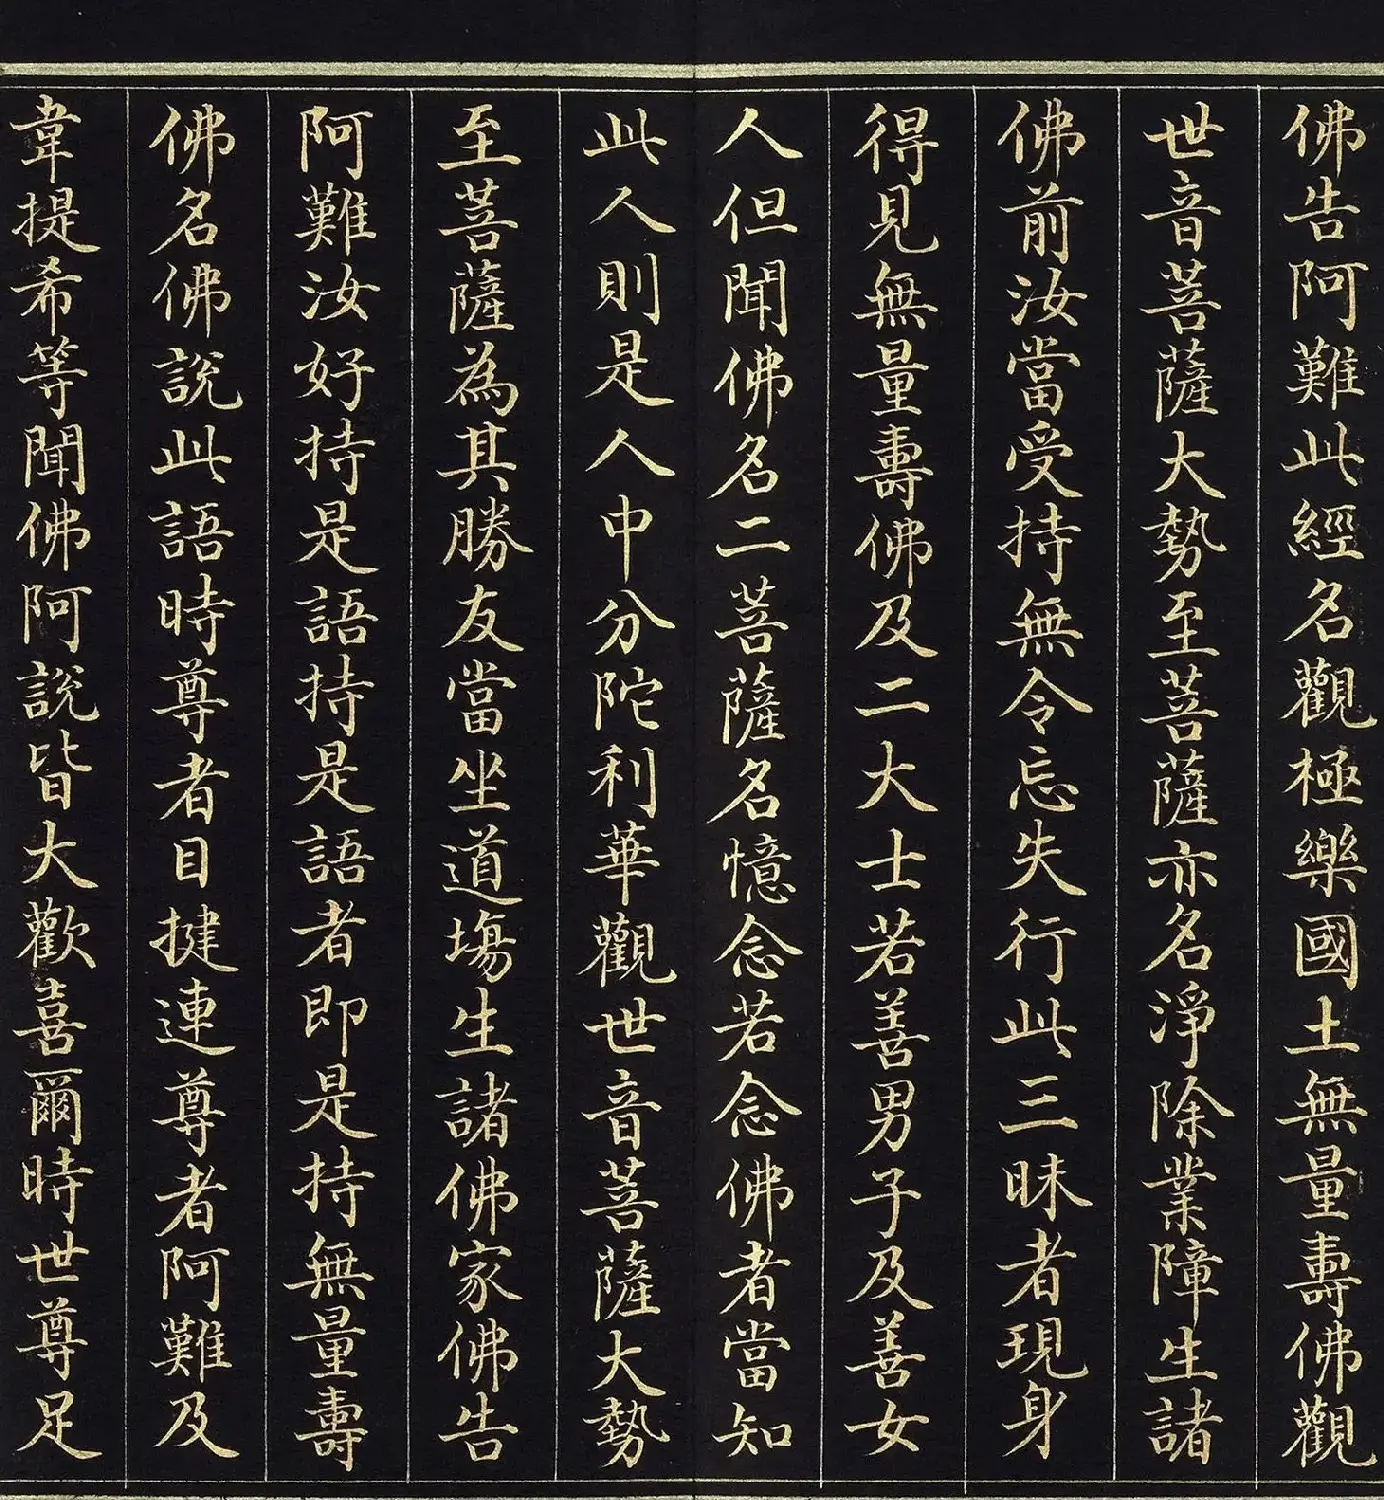 佛告阿難此經名觀極樂國土無量壽佛觀
世音菩薩大勢至菩薩亦名淨除業障生諸
佛前汝當受持無令忘失行此三昧者現身
得見無量壽佛及二大士若善男子及善女
人但聞佛名二菩薩名憶念若念佛者當知
此人則是人中分陀利華觀世音菩薩大勢
至菩薩為其勝友當坐道場生諸佛家佛告
阿難汝好持是語持是語者即是持無量壽
佛名佛說此語時尊者目揵連尊者阿難及
韋提希等聞佛阿說皆大歡喜爾時世尊足